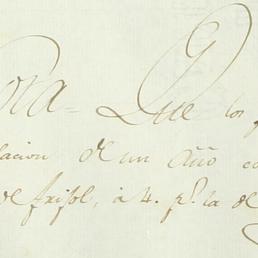 ora = Que los
lacion de un año co
de frisol, á 4. p.s la de